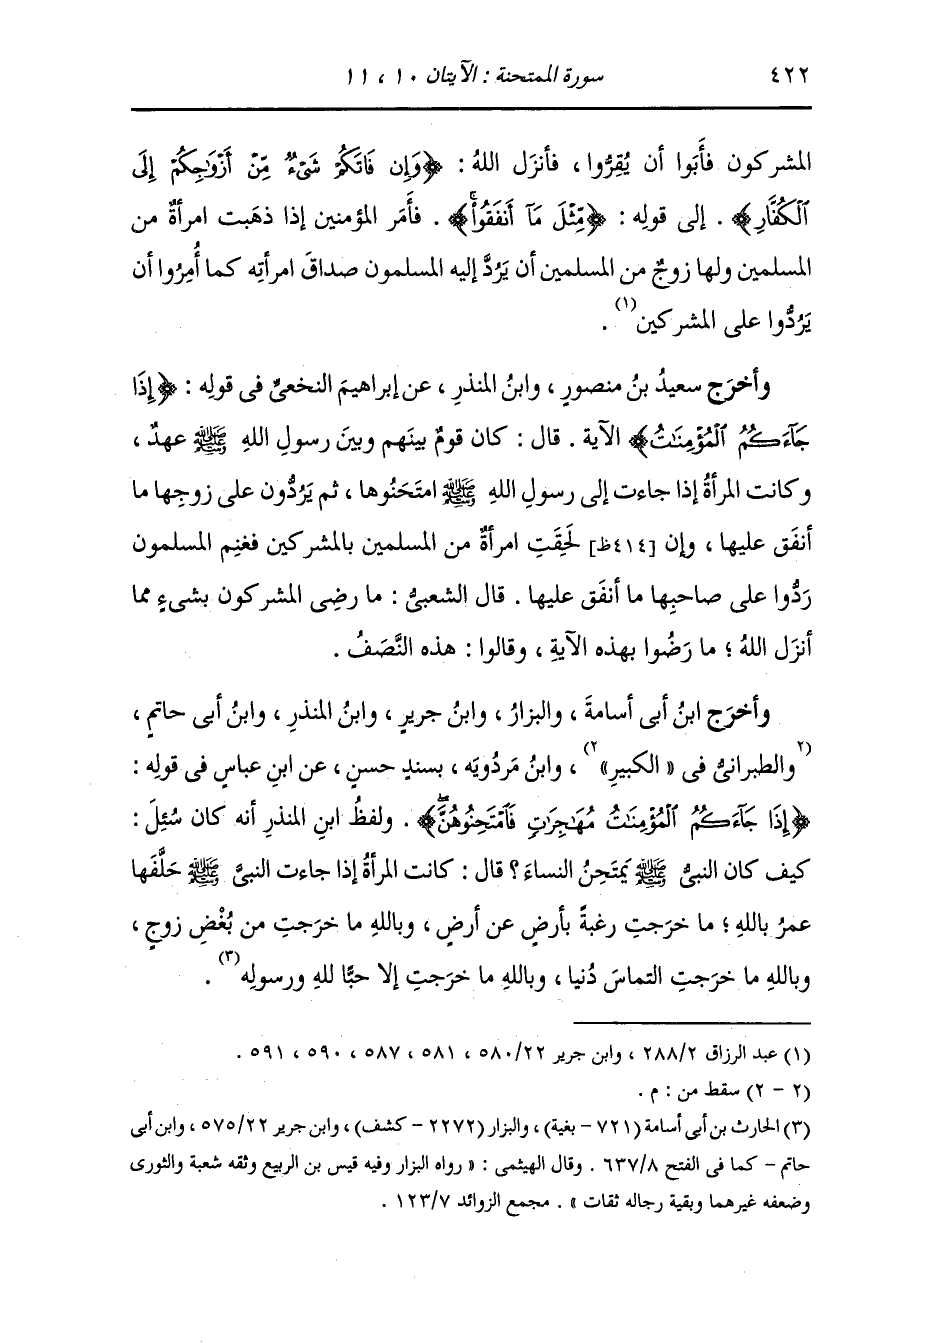 ٤٢٢ سورة الممتحنة : الآيتان ١٠ ، ١١
المشركون فأَبَوا أن يُقِرُّوا ، فأنزَل اللهُ : ﴿وَإِن فَاتَكُمْ شَىْءٌ مِّنْ أَزْوَٰجِكُمْ إِلَى
ٱلْكُفَّارِ﴾ . إلى قولِه : ﴿مِّثْلَ مَآ أَنفَقُوا۟ۚ﴾ . فأمَر المؤمنين إذا ذهَبت امرأةٌ من
المسلمين ولها زوجٌ من المسلمين أن يَرُدَّ إليه المسلمون صداقَ امرأتِه كما أُمِرُوا أن
يَرُدُّوا على المشركين(١) .
وأخرَج سعيدُ بنُ منصورٍ ، وابنُ المنذرِ ، عن إبراهيمَ النخعىِّ فى قولِه : ﴿إِذَا
جَآءَكُمُ ٱلْمُؤْمِنَٰتُ﴾ الآية . قال : كان قومٌ بينَهم وبينَ رسولِ اللهِ ﷺ عهدٌ ،
وكانت المرأةُ إذا جاءت إلى رسولِ اللهِ ﷺ امتَحَنُوها ، ثم يَرُدُّون على زوجِها ما
أنفَق عليها ، وإن [٤١٤ظ] لَحِقَتِ امرأةٌ من المسلمين بالمشركين فغنِم المسلمون
رَدُّوا على صاحبِها ما أنفَق عليها . قال الشعبىُّ : ما رضِى المشركون بشىءٍ مما
أنزَل اللهُ ؛ ما رَضُوا بهذه الآيةِ ، وقالوا : هذه النَّصَفُ .
وأخرَج ابنُ أبى أسامةَ ، والبزارُ ، وابنُ جريرٍ ، وابنُ المنذرِ ، وابنُ أبى حاتمٍ ،
(٢والطبرانىُّ فى « الكبيرِ »٢) ، وابنُ مَردُويَه ، بسندٍ حسنٍ ، عن ابنِ عباسٍ فى قولِه :
﴿إِذَا جَآءَكُمُ ٱلْمُؤْمِنَٰتُ مُهَٰجِرَٰتٍ فَٱمْتَحِنُوهُنَّۖ﴾ . ولفظُ ابنِ المنذرِ أنه كان سُئِلَ :
كيف كان النبىُّ ﷺ يَمتَحِنُ النساءَ ؟ قال : كانت المرأةُ إذا جاءت النبىَّ ﷺ حَلَّفَها
عمرُ باللهِ ؛ ما خرَجتِ رغبةً بأرضٍ عن أرضٍ ، وباللهِ ما خرَجتِ من بُغْضِ زوجٍ ،
وباللهِ ما خرَجتِ التماسَ دُنيا ، وباللهِ ما خرَجتِ إلا حبًّا للهِ ورسولِه(٣) .
(١) عبد الرزاق ٢٨٨/٢ ، وابن جرير ٥٨٠/٢٢ ، ٥٨١ ، ٥٨٧ ، ٥٩٠ ، ٥٩١ .
(٢ - ٢) سقط من : م .
(٣) الحارث بن أبى أسامة (٧٢١ - بغية) ، والبزار (٢٢٧٢ - كشف) ، وابن جرير ٥٧٥/٢٢ ، وابن أبى
حاتم - كما فى الفتح ٦٣٧/٨ . وقال الهيثمى : « رواه البزار وفيه قيس بن الربيع وثقه شعبة والثورى
وضعفه غيرهما وبقية رجاله ثقات » . مجمع الزوائد ١٢٣/٧ .